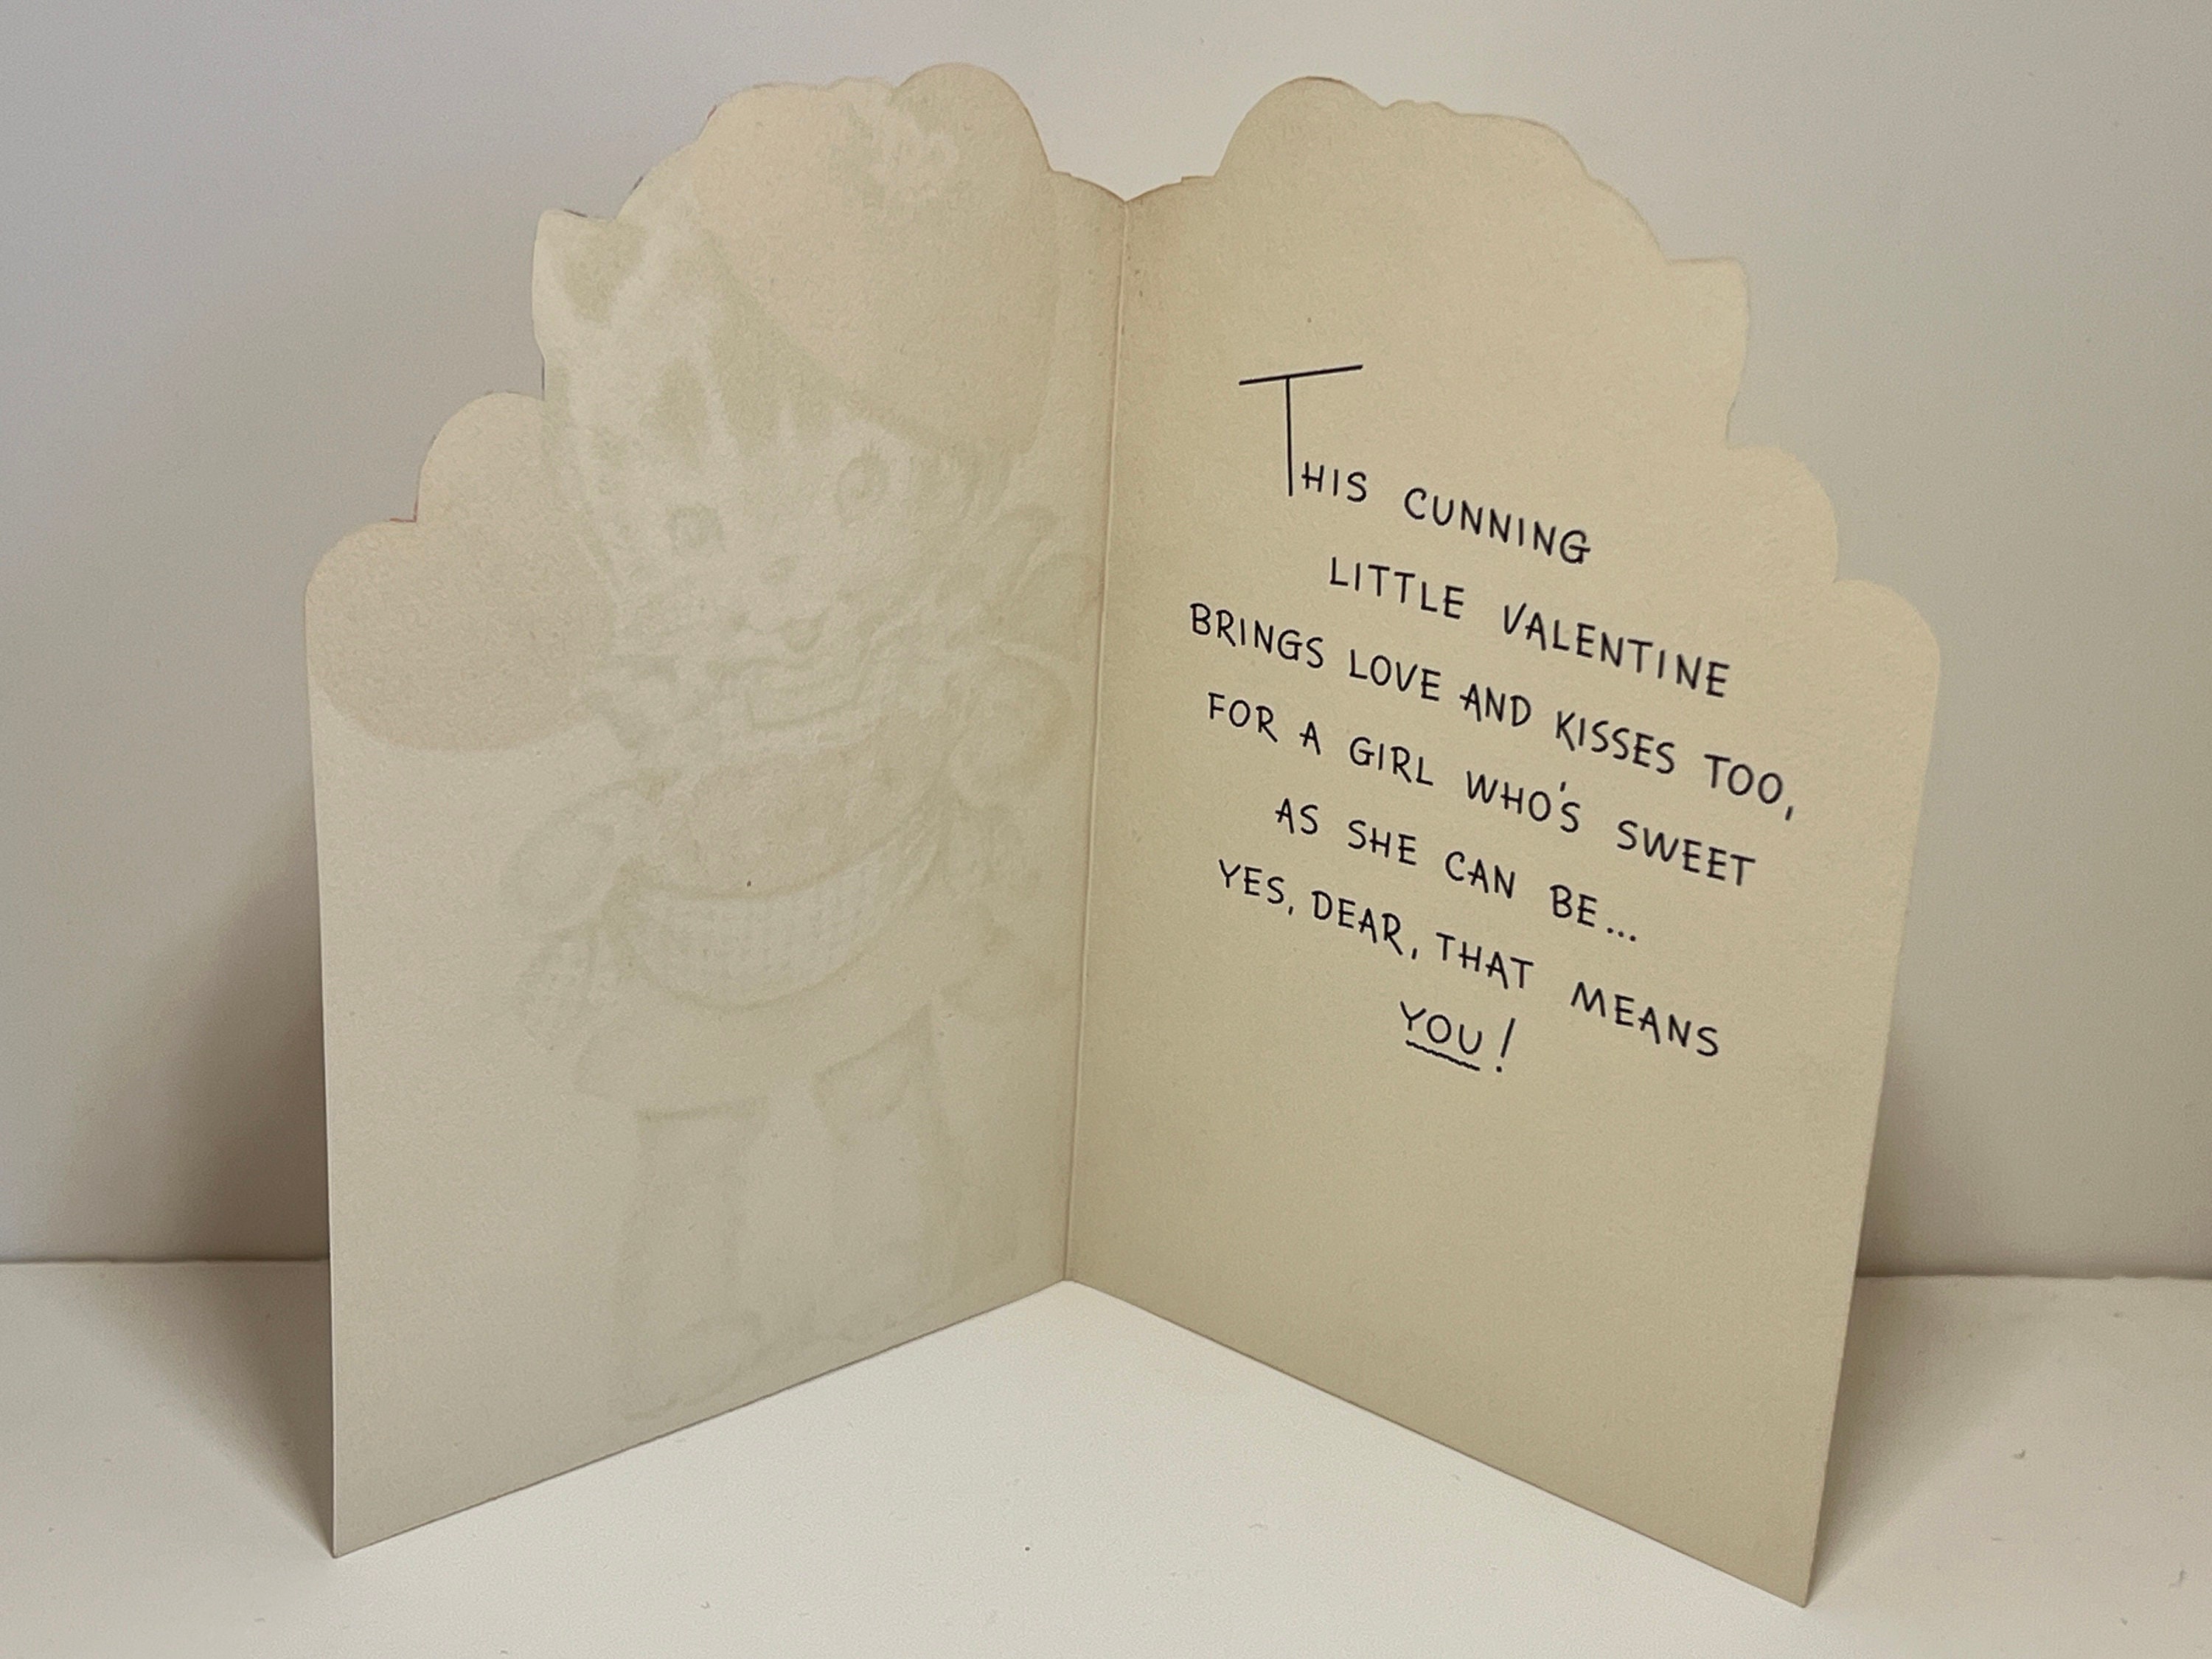 THIS CUNNING
LITTLE VALENTINE
BRINGS LOVE AND KISSES TOO,
FOR A GIRL WHO'S SWEET
AS SHE CAN BE...
YES, DEAR, THAT MEANS
YOU!